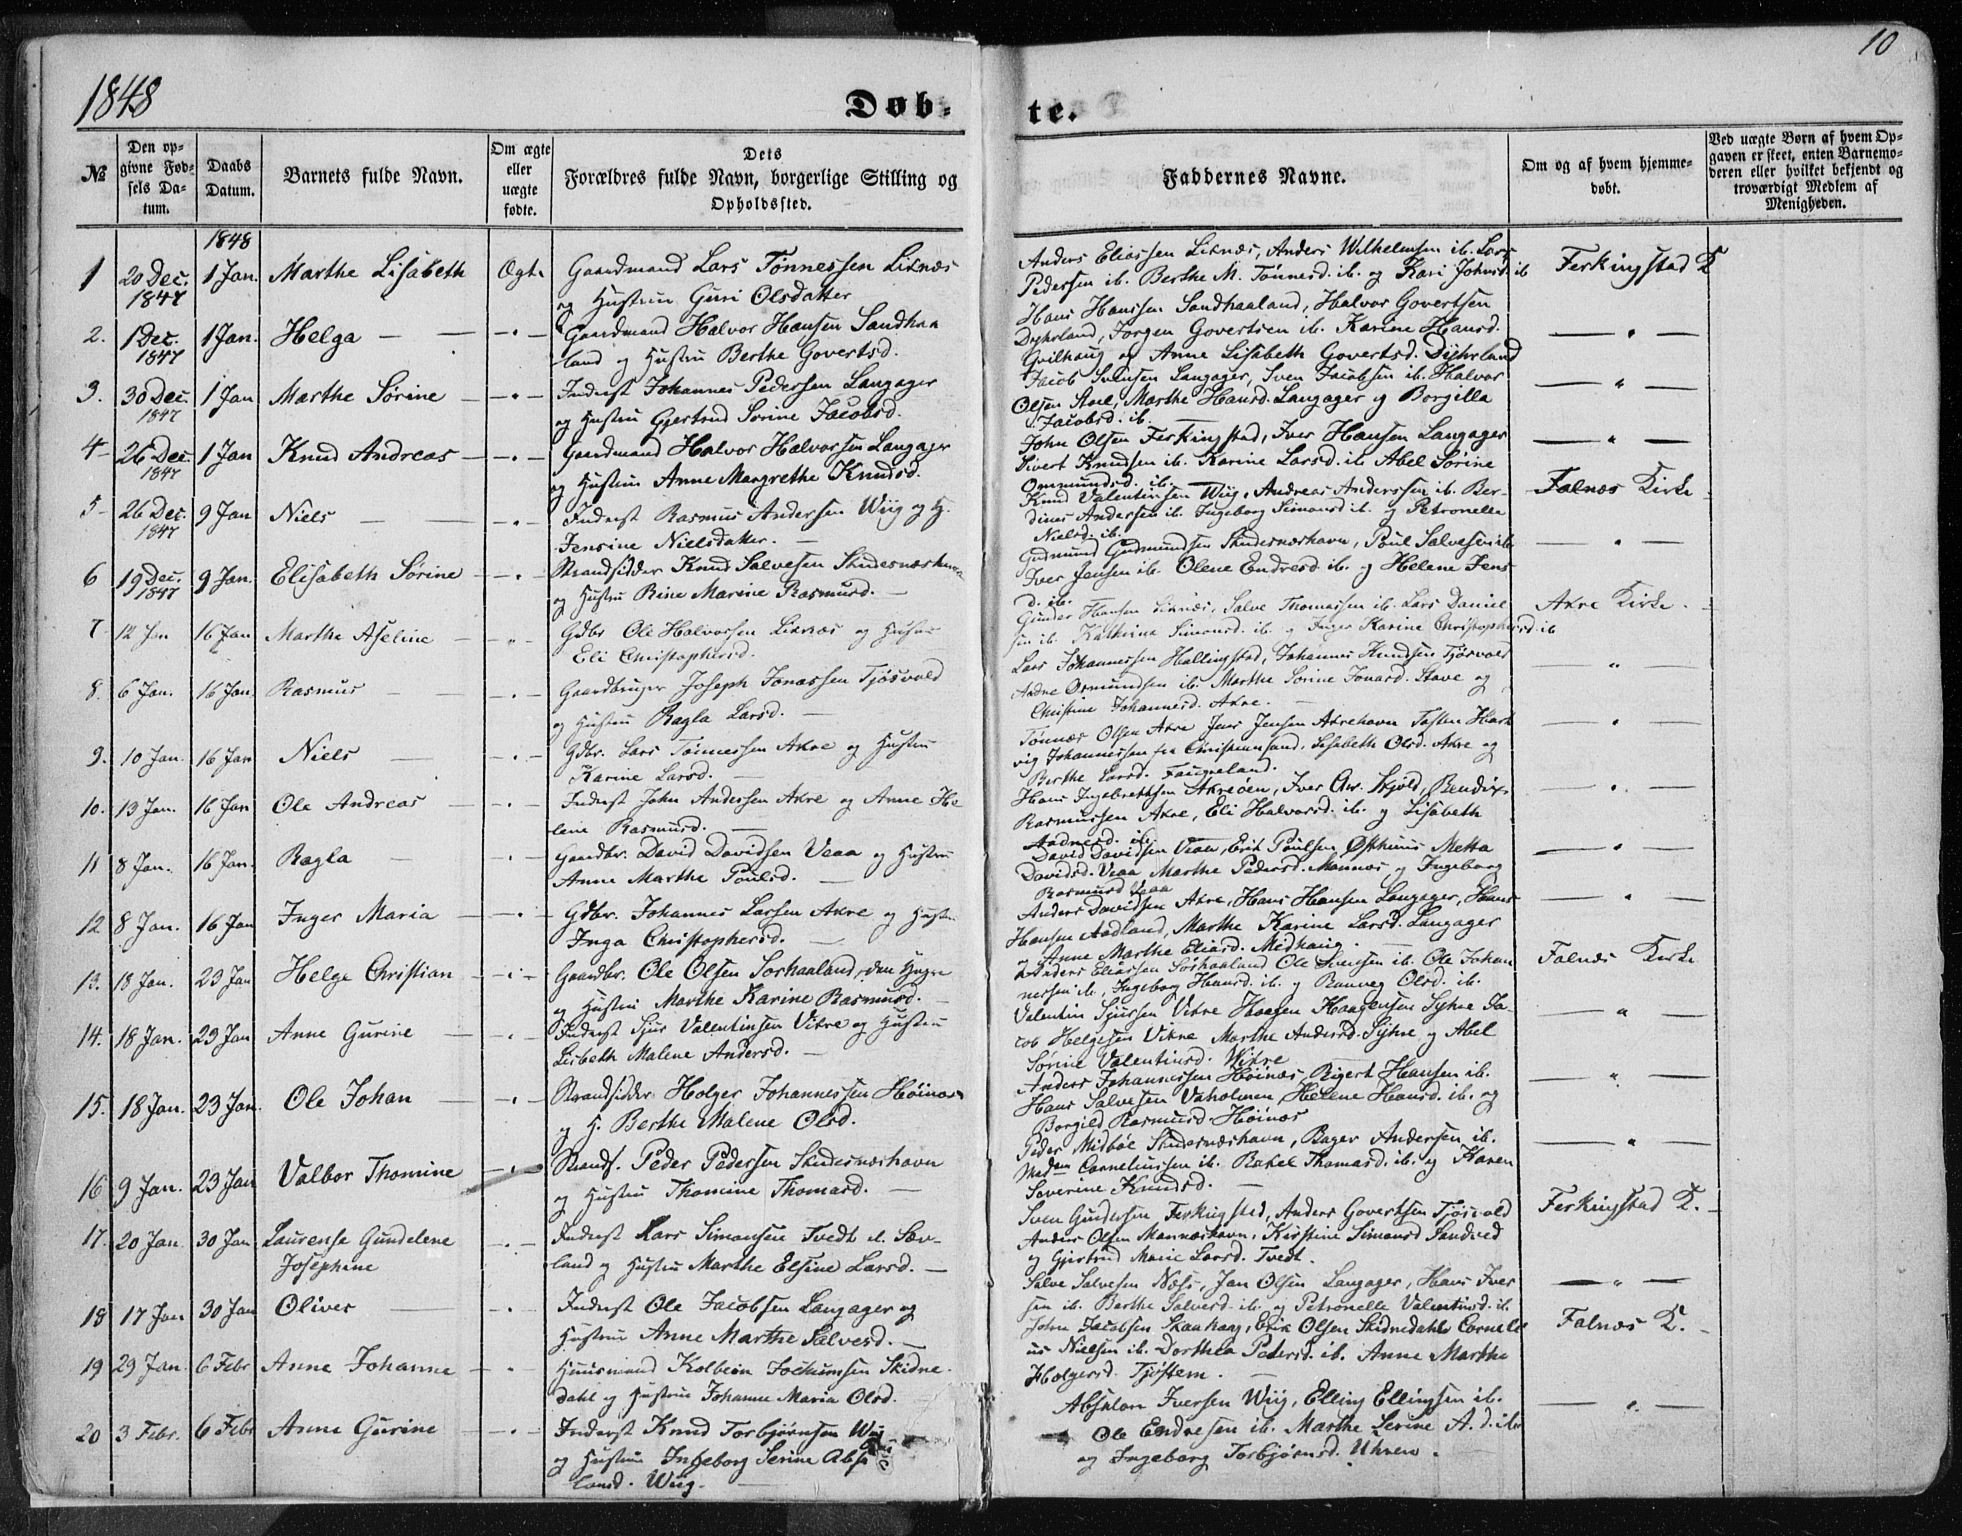 1848
10
Døb-
te.
№
Den op-
givne Fød-
sels Da-
tum.
Daabs
Datum.
Barnets fulde Navn.
Om ægte
eller
uægte
fødte.
Dets
Forældres fulde Navn, borgerlige Stilling og
Opholdssted.
Faddernes Navne.
Om og af hvem hjemme-
døbt.
Ved uægte Børn af hvem Op-
gaven er skeet, enten Barnemo-
deren eller hvilket bekjendt og
troværdigt Medlem af
Menigheden.
1848
1 20 Dec. 1847 1 Jan. Marthe Lisabeth Ægte
Gaardmand Lars Tönnessen Liknæs
og Hustru Guri Olsdatter
Anders Eliassen Liknæs, Anders Wilhelmsen ib. Lars
Pedersen ib. Berthe M. Tönnesd. ib. og Kari Johnsd. ib
Ferkingstad K
2. 1 Dec. 1847 1 Jan. Helga — " —
Gaardmand Halvor Hansen Sandhaa
land og Hustru Berthe Govertsd.
Hans Hanssen Sandhaaland, Halvor Govertsen
Dyhrland, Jørgen Govertsen ib. Karine Hansd.
Qvilhaug og Anne Lisabeth Govertsd. Dyhrland
— " —
3. 30 Dec. 1847 1 Jan Marthe Sørine — " —
Inderst Johannes Pedersen Langager
og Hustru Gjertrud Sørine Jacobsd.
Jacob Svensen Langager, Sven Jacobsen ib. Halvor
Olsen, Marthe Hansd. Langager og Borgilla
Jacobsd. ib.
— " —
4 26 Dec. 1847 1 Jan Knud Andreas — " —
Gaardmand Halvor Halvorsen Langager
og Hustru Anne Margrethe Knudsd.
John Olsen Ferkingstad, Iver Hansen Langager
Sivert Knudsen ib. Karine Larsd. ib. Abel Sörine
Ommundsd. ib.
— " —
5 26 Dec. 1847 9 Jan Niels — " —
Inderst Rasmus Andersen Wiig og H.
Jensine Nielsdatter.
Knud Valentinsen Wiig, Andreas Anderssen ib. Ber-
dines Andersen ib. Ingeborg Simonsd. ib. og Petronelle
Nielsd. ib.
Falnæs Kirke
6 19 Dec. 1847 9 Jan. Elisabeth Sörine — " —
Strandsidder Knud Salvesen Skudesnæshavn
og Hustru Rine Marine Rasmusd.
Gudmund Gudmundsen Skudesnæshavn, Poul Salvesen ib
Iver Jensen ib. Olene Endresd. ib. og Helene Jens
d. ib.
— " —
7 12 Jan 16 Jan Marthe Aseline — " —
Gdbr Ole Halvorsen Liknæs og Hustru
Eli Christophersd.
Gunder Hansen Liknæs, Salve Thomassen ib. Lars Daniel
sen ib. Kathrina Simonsd. ib. og Inger Karine Christophersd. ib
Akre Kirke.
8. 6 Jan. 16 Jan. Rasmus — " —
Gaardbruger Joseph Jonassen Tjösvold
og Hustru Ragla Larsd.
Lars Johannessen Hallingstad, Johannes Knudsen Tjösvold
Andre Osmundsen ib. Marthe Sörine Jonasd. Stave og
Christine Johannesd. Akre.
" —
9. 10 Jan. 16 Jan Niels — " —
Gdbr. Lars Tönnessen Akre og Hustru
Karine Larsd.
Tönnæs Olsen Akre Jens Jensen Akrehavn Tosten Hart
vig Johannessen fra Christiansand, Lisabeth Olsd. Akre og
Berthe Larsd.
— " —
10. 13 Jan. 16 Jan Ole Andreas — " —
Inderst John Andersen Akre og Anne He
lene Rasmusd.
Hans Ingebrethsen Akreöen, Iver Skjold, Bendix
Rasmussen Akre, Eli Halvorsd. ib. og Lisabeth
Aadnesd. ib.
— " —
11 8 Jan. 16 Jan. Ragla — " —
Gaardbr. David Davidsen Veaa og Hustru
Anne Marthe Poulsd.
David Davidsen Veaa, Erik Poulsen Östhuus Metta
Davidsd. Veaa Marthe Pedersd. Mannæs og Ingeborg
Rasmusd Veaa
— " —
12 8 Jan. 16 Jan Inger Maria — " —
Gdbr. Johannes Larsen Akre og Hustru
Inga Christophersd.
Anders Davidsen Akre, Hans Hansen Langager, Hans
Hansen Aadland, Marthe Karine Larsd. Langager
og Anne Marthe Eliasd. Midhaug.
— " —
13. 18 Jan. 23 Jan Helge Christian — " —
Gaardbr. Ole Olsen Sörhaaland, den Yngre
og Hustru Marthe Karine Rasmusd.
Anders Eliassen Sörhaaland Ole Svensen ib. Ole Johan
nessen ib., Ingeborg Hansd. ib. og Ranveg Olsd. ib.
Falnæs Kirke
14. 18 Jan. 23 Jan Anne Gurine — " —
Inderst Sjur Valentinsen Vikre og Hustru
Lisbeth Malene Andersd.
Valentin Sjursen Vikre Haagen Haagensen Syhre Ja-
cob Helgesen Vikre Marthe Andersd. Syhre og Abel
Sörine Valentinsd. Wikre
— " —
15. 18 Jan. 23 Jan. Ole Johan — " —
Strandsidder Holger Johannessen Höinæs
og H. Berthe Malene Olsd.
Anders Johannessen Höinæs, Rigert Hansen ib.
Hans Salvesen Vaholmen, Helene Hansd. ib. og
Borgild Rasmusd Höinæs
— " —
16 9 Jan. 23 Jan Valbor Thomine — " —
Strands. Peder Pedersen Skudesnæshavn
og Hustru Thomine Thomasd.
Peder Midböe Skudesnæshavn, Bager Andersen ib.
Madam Corneliussen ib. Rakel Thomasd. ib. og Karen
Severine Knudsd.
— " —
17. 20 Jan. 30 Jan Laurense Gundelene — " —
Josephine
Inderst Lars Simonsen Tvedt el. Sæv-
land og Hustru Marthe Elsine Larsd.
Sven Gundersen Ferkingstad, Anders Govertsen Tjösvold
Anders Olsen Mannæshavn, Kirstine Simonsd Sandved
og Gjertrud Marie Larsd. Tvedt.
Ferkingstad K.
18 17 Jan 30 Jan Oliver — " —
Inderst Ole Jacobsen Langager og
Hustru Anne Marthe Salvesd.
Salve Salvesen Næss, Jan Olsen Langager, Hans Iver
sen ib. Berthe Salvesd. ib. og Petronelle Valentinsd. ib.
— " —
19 29 Jan. 6 Febr Anne Johanne — " —
Huusmand Kolbein Jochumsen Skidne
dahl og Hustru Johanne Maria Olsd.
John Jacobsen, Erik Olsen Skidnedahl, Corneli
us Nielsen ib. Dorthea Pedersd. ib. Anne Marthe
Holgersd. Tjöstem.
Falnæs K.
20 3 Febr. 6 Febr Anne Gurine — " —
Inderst Knud Torbjørnsen Wiig
og Hustru Ingeborg Serine Absa
lonsd. Wiig.
Absalon Iversen Wiig, Elling Ellingsen ib.
Ole Endresen ib. Marthe Serine A.d. ib.
og Ingeborg Torbjørnsd. Uhren.
— " —